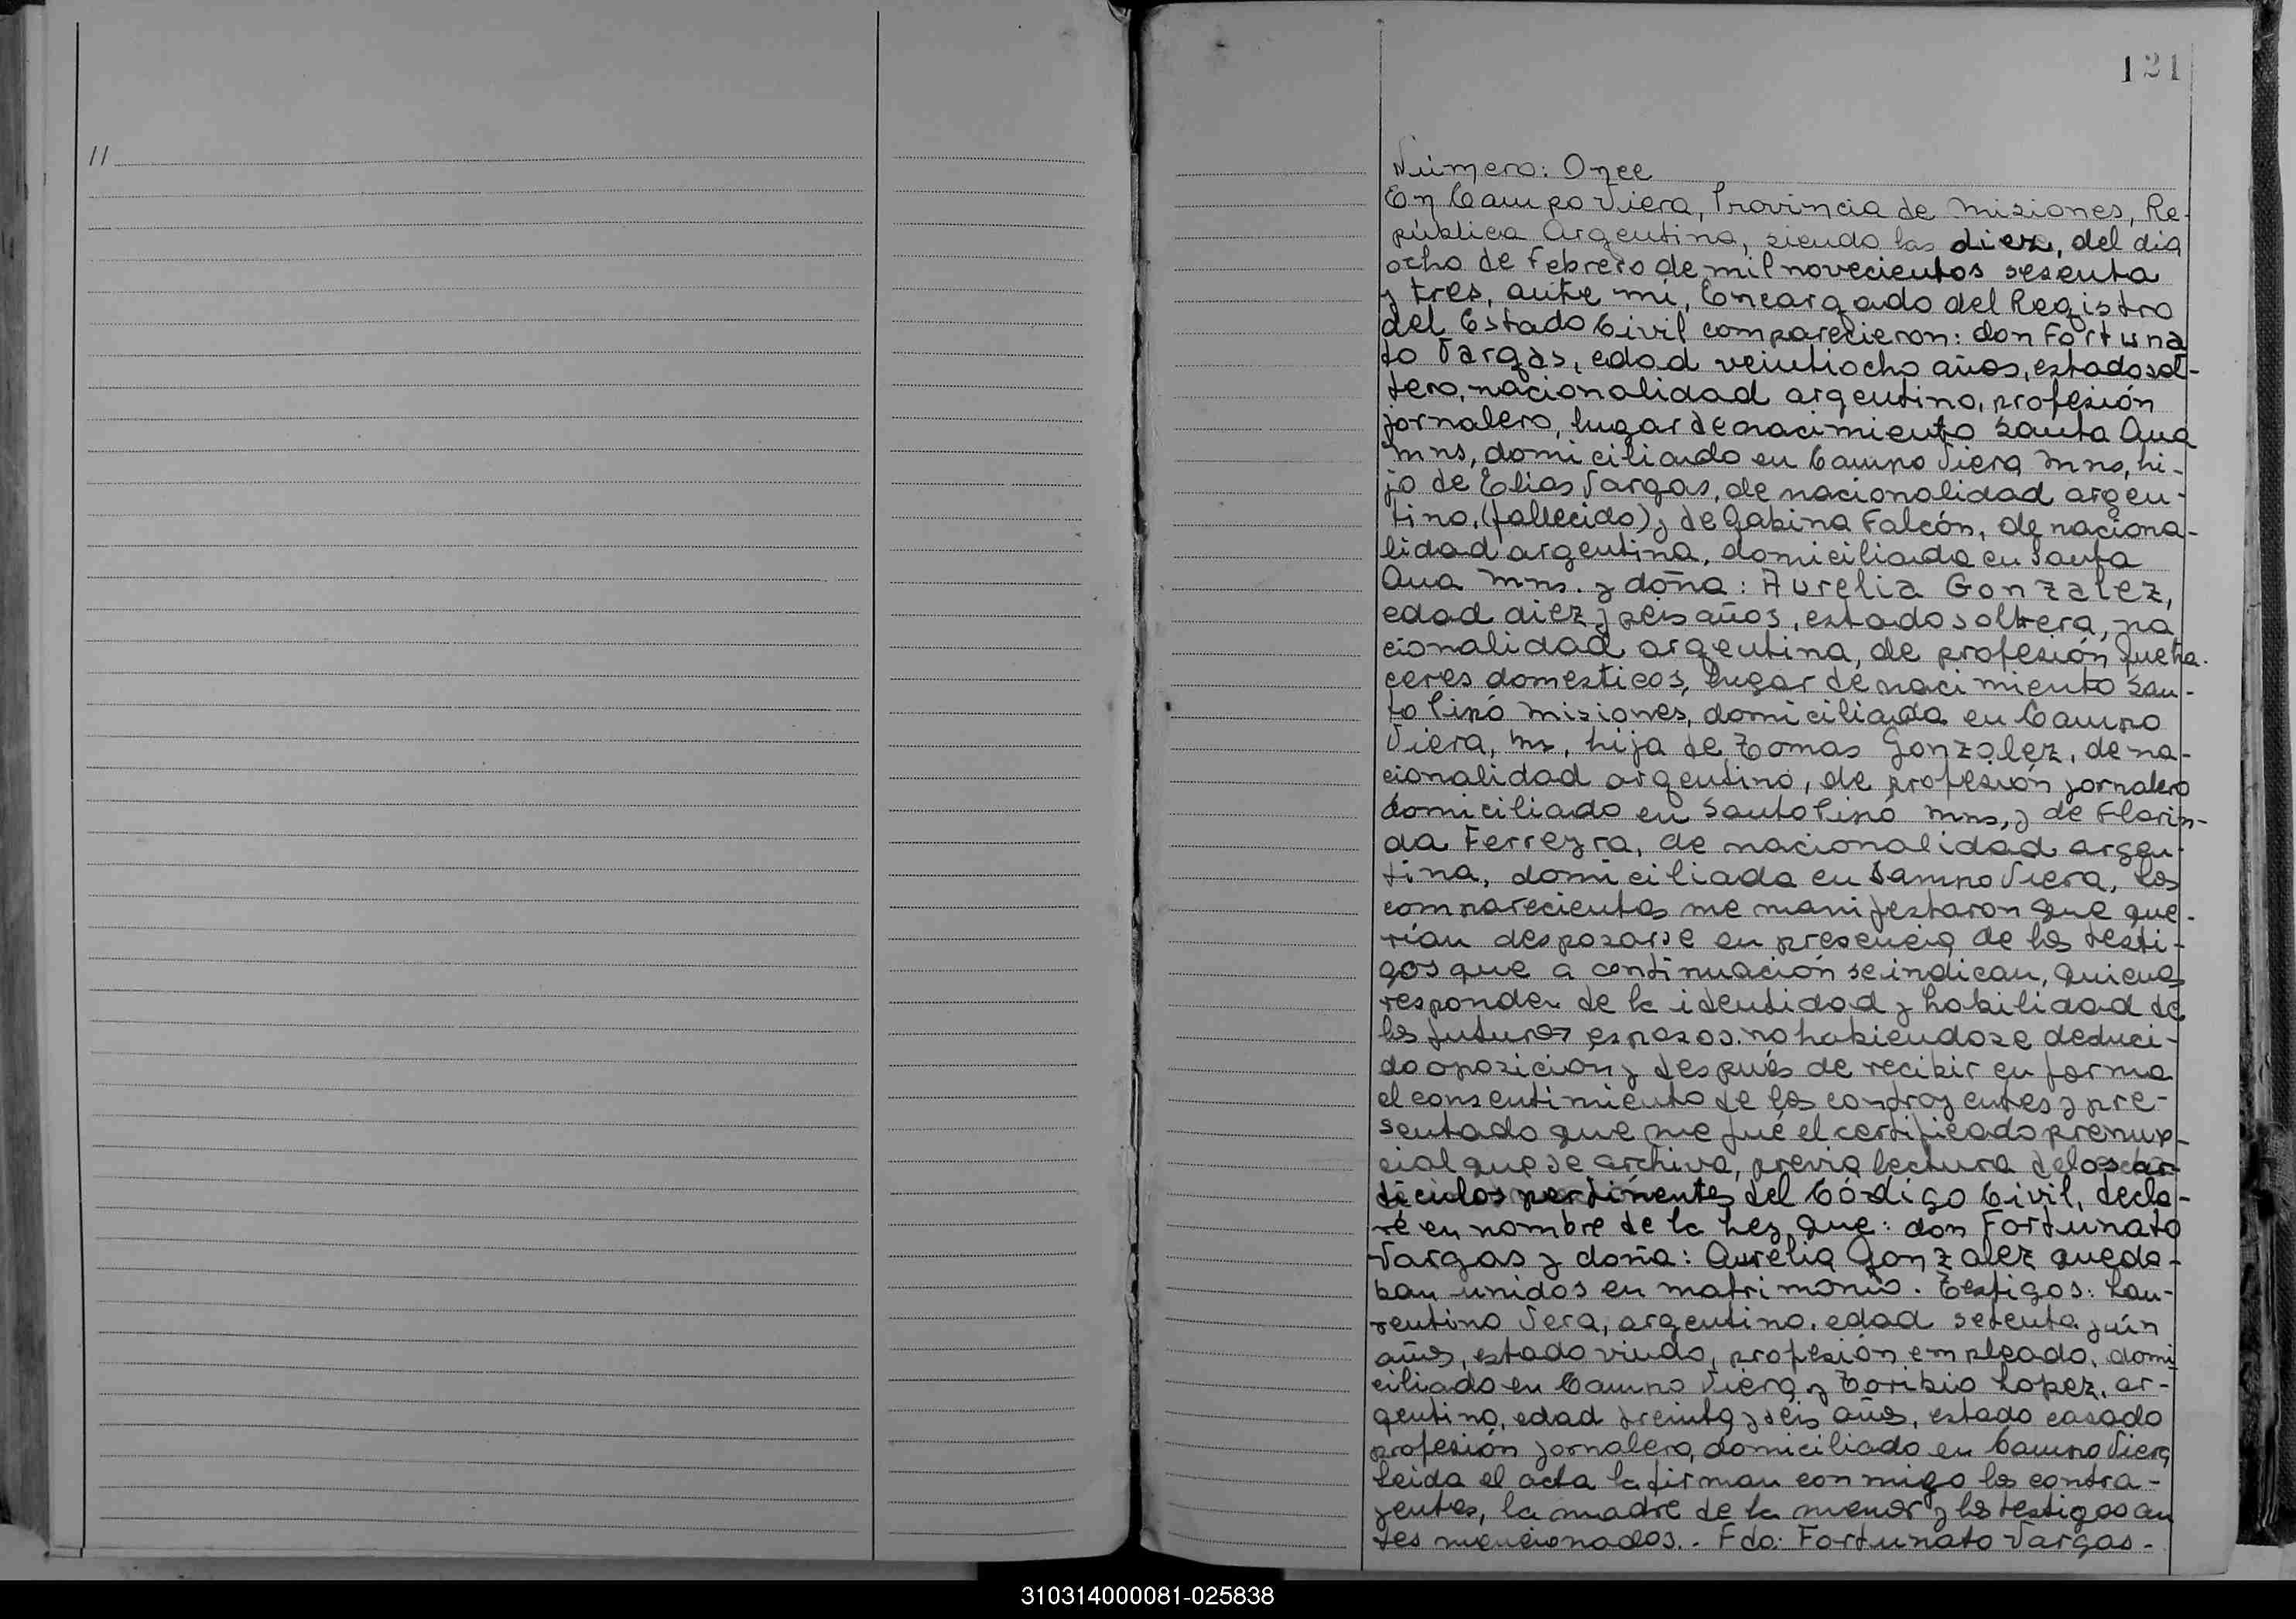 121
11
Número: Once
En Campo Viera, Provincia de Misiones, Re-
pública Argentina, siendo las diez, del dia
ocho de Febrero de mil novecientos sesenta
y tres, ante mi, Encargado del Registro
del Estado Civil comparecieron: don Fortuna
to Vargas, edad veintiocho años, estado sol-
tero, nacionalidad argentino, profesión
jornalero, lugar de nacimiento Santa Ana
Mns, domiciliado en Campo Viera Mns, hi-
jo de Elias Vargas, de nacionalidad argen-
tino, (fallecido) y de Gabina Falcón, de naciona-
lidad argentina, domiciliada en Santa
Ana Mns. y doña: Aurelia Gonzalez,
edad diez y seis años, estado soltera, na
cionalidad argentina, de profesión queha-
ceres domesticos, lugar de nacimiento San-
to Pipó Misiones, domiciliada en Campo
Viera, Mns, hija de Tomas Gonzalez, de na-
cionalidad argentino, de profesión jornalero
domiciliado en Santo Pipó Mns, y de Florin-
da Ferreyra, de nacionalidad argen-
tina, domiciliada en Campo Viera, los
comparecientes me manifestaron que que-
rian desposarse en presencia de los testi-
gos que a continuación se indican, quienes
responden de la identidad y habilidad de
los futuros esposos. no habiendose deduci-
do oposición y después de recibir en forma
el consentimiento de los contrayentes y pre-
sentado que me fué el certificado prenup-
cial que se archiva, previa lectura de los ar-
tículos pertinentes del Código Civil, decla-
ré en nombre de la Ley que: don Fortunato
Vargas y doña: Aurelia Gonzalez queda-
ban unidos en matrimonio. Testigos: Lau-
rentino Vera, argentino, edad setenta y un
años, estado viudo, profesión empleado, domi
ciliado en Campo Viera y Toribio Lopez, ar-
gentino, edad treinta y seis años, estado casado
profesión jornalero, domiciliado en Campo Viera
Leida el acta la firman conmigo los contra-
yentes, la madre de la menor y los testigos an
tes mencionados.. Fdo: Fortunato Vargas.-
310314000081-025838